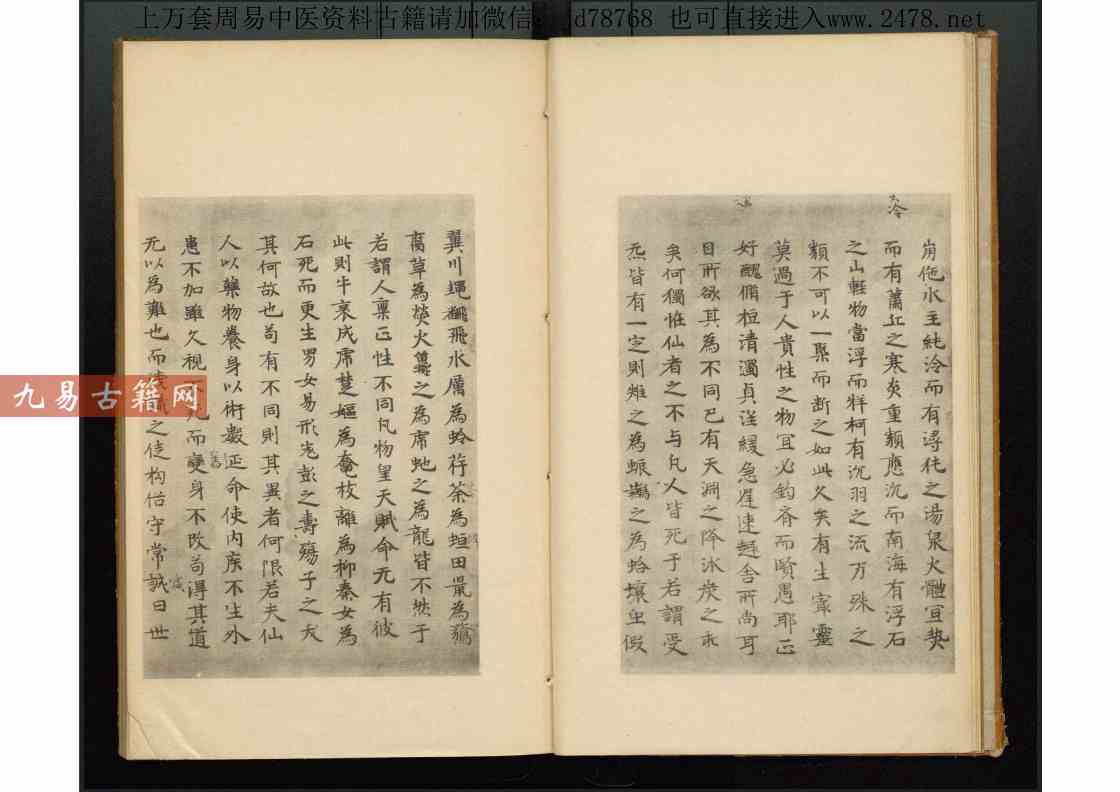 上万套周易中医资料古籍请加微信:  d78768 也可直接进入www.2478.net
冷
崩伲水主純泠而有㝷㐌之湯泉火體宜熱
而有蕭丘之寒炎重類應沉而南海有浮石
之山輕物當浮而牂柯有沉羽之流万殊之
類不可以一槩而断之如此久矣有生寂靈
莫過于人貴性之物宜必鈞齊而賢愚耶正
好醜脩桓清濁貞淫緩急遲速趍舎所尚耳
目所欲其為不同已有天淵之降冰炭之乖
矣何獨恠仙者之不与凡人皆死于若謂受
炁皆有一定則雉之為蜃之為蛤壤虫假
翼川蛙飜飛水厲為蛉荇荼為蛆田鼠為鴽
腐草為熒火鼉之為席虵之為龍皆不然于
若謂人稟正性不同凡物皇天賦命无有彼
此則牛哀成席楚嫗為黿枝離為柳秦女為
石死而更生男女易形老彭之壽殤子之夭
其何故也苟有不同則其異者何限若夫仙
人以藥物養身以術數延命使内疾不生外
患不加雖久視不死而變身不改苟得其道
无以為難也而之徒构俗守常誠曰世
九易古籍网